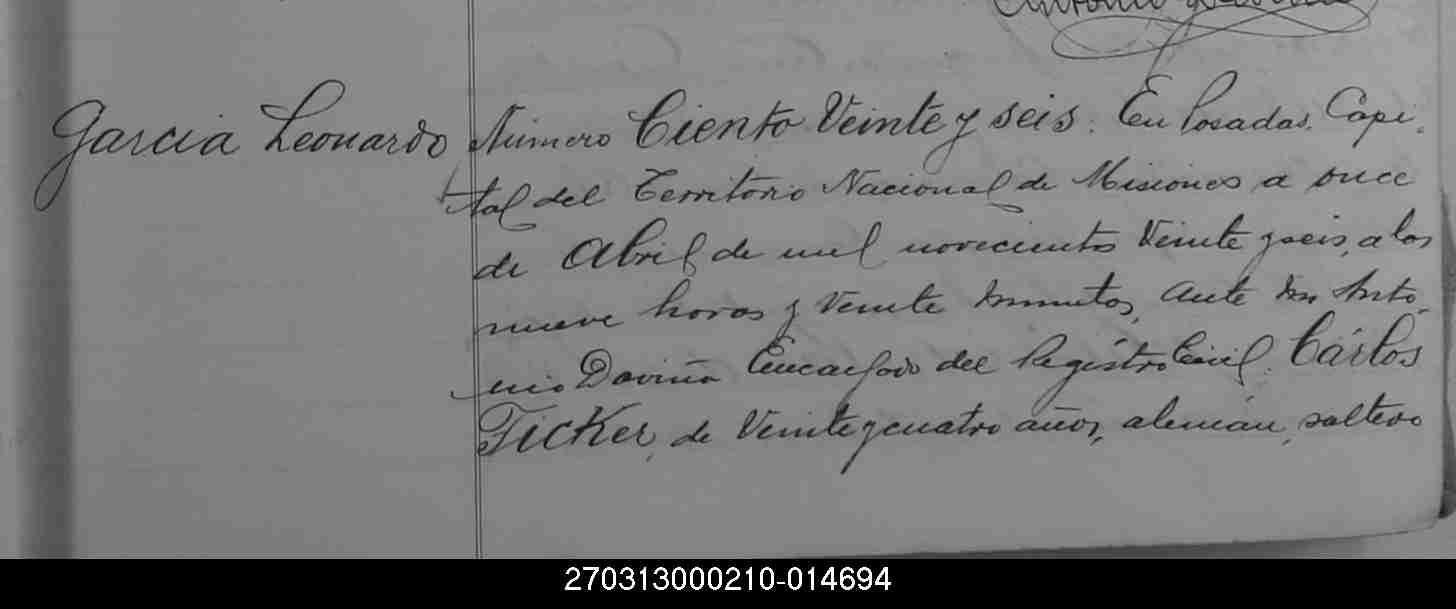 Antonio
Garcia Leonardo
Número Ciento Veinte y seis. En Posadas, Capi-
tal del Territorio Nacional de Misiones a once
de Abril de mil novecientos Veinte y seis, a las
nueve horas y Veinte minutos, ante Don Anto-
nio Daviña Encargado del Registro Civil. Cárlos
Ticker, de Veinte y cuatro años, aleman, soltero
270313000210-014694